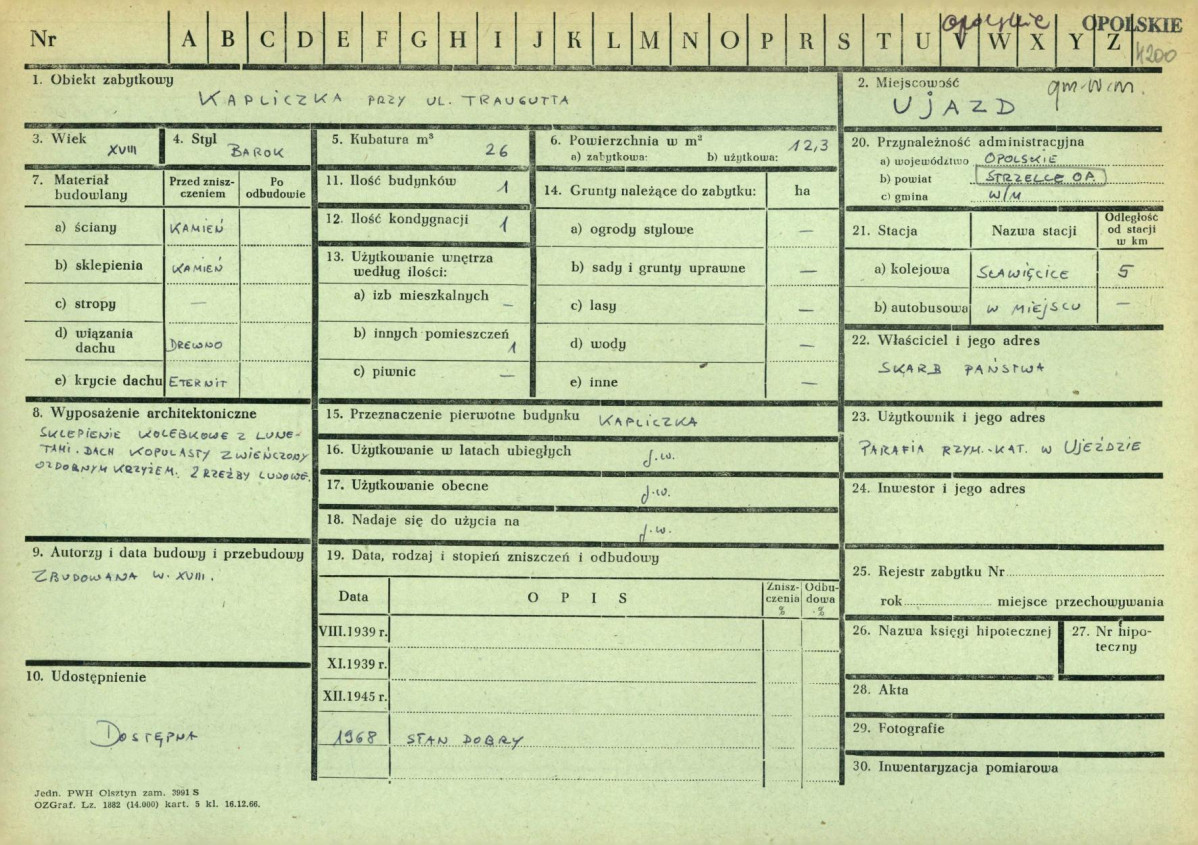 opolskie OPOLSKIE
Nr A B C D E F G H I J K L M N O P R S T U V W X Y Z
4200
1. Obiekt zabytkowy
KAPLICZKA PRZY UL. TRAUGUTTA
2. Miejscowość
gm. W/M.
UJAZD
3. Wiek
XVIII
4. Styl
BAROK
5. Kubatura m³
26
6. Powierzchnia w m²
a) zabytkowa: b) użytkowa:
12,3
20. Przynależność administracyjna
a) województwo OPOLSKIE
b) powiat STRZELCE OP.
c) gmina W/M
7. Materiał budowlany
Przed znisz-
czeniem
Po
odbudowie
a) ściany KAMIEŃ
b) sklepienia KAMIEŃ
c) stropy —
d) wiązania
dachu DREWNO
e) krycie dachu ETERNIT
11. Ilość budynków
1
12. Ilość kondygnacji
1
13. Użytkowanie wnętrza
według ilości:
a) izb mieszkalnych
—
b) innych pomieszczeń
1
c) piwnic —
14. Grunty należące do zabytku: ha
a) ogrody stylowe —
b) sady i grunty uprawne —
c) lasy —
d) wody —
e) inne —
21. Stacja Nazwa stacji
Odległość
od stacji
w km
a) kolejowa SŁAWIĘCICE 5
b) autobusowa W MIEJSCU —
22. Właściciel i jego adres
SKARB PAŃSTWA
8. Wyposażenie architektoniczne
SKLEPIENIE KOLEBKOWE Z LUNE-
TAMI. DACH KOPULASTY ZWIEŃCZONY
OZDOBNYM KRZYŻEM. 2 RZEŹBY LUDOWE.
15. Przeznaczenie pierwotne budynku KAPLICZKA
16. Użytkowanie w latach ubiegłych j.w.
17. Użytkowanie obecne j.w.
18. Nadaje się do użycia na j.w.
23. Użytkownik i jego adres
PARAFIA RZYM.-KAT. W UJEŹDZIE
24. Inwestor i jego adres
9. Autorzy i data budowy i przebudowy
ZBUDOWANA W. XVIII.
19. Data, rodzaj i stopień zniszczeń i odbudowy
Data O P I S
Znisz-
czenia
%
Odbu-
dowa
%
VIII.1939 r.
XI.1939 r.
XII.1945 r.
1968 STAN DOBRY
25. Rejestr zabytku Nr
rok miejsce przechowywania
26. Nazwa księgi hipotecznej
27. Nr hipo-
teczny
10. Udostępnienie
DOSTĘPNA
28. Akta
29. Fotografie
30. Inwentaryzacja pomiarowa
Jedn. PWH Olsztyn zam. 3991 S
OZGraf. Lz. 1882 (14.000) kart. 5 kl. 16.12.66.